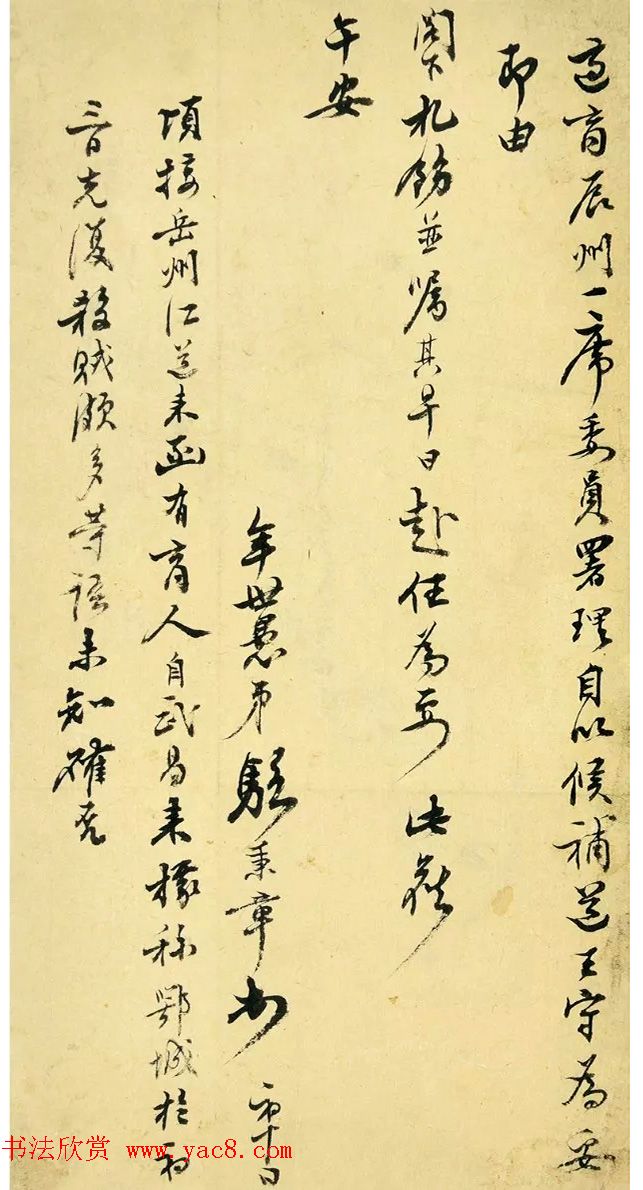 商辰州一席委員署理自以候補道王守為妥
即由
閣下札飭並囑其早日赴任為要 此
午安
年世愚弟駱秉章 初十日
頃接岳州江道來函有商人自武昌來據稱鄂城於初
三日克復殺賊頗多等語未知確否
书法欣赏 www.yac8.com